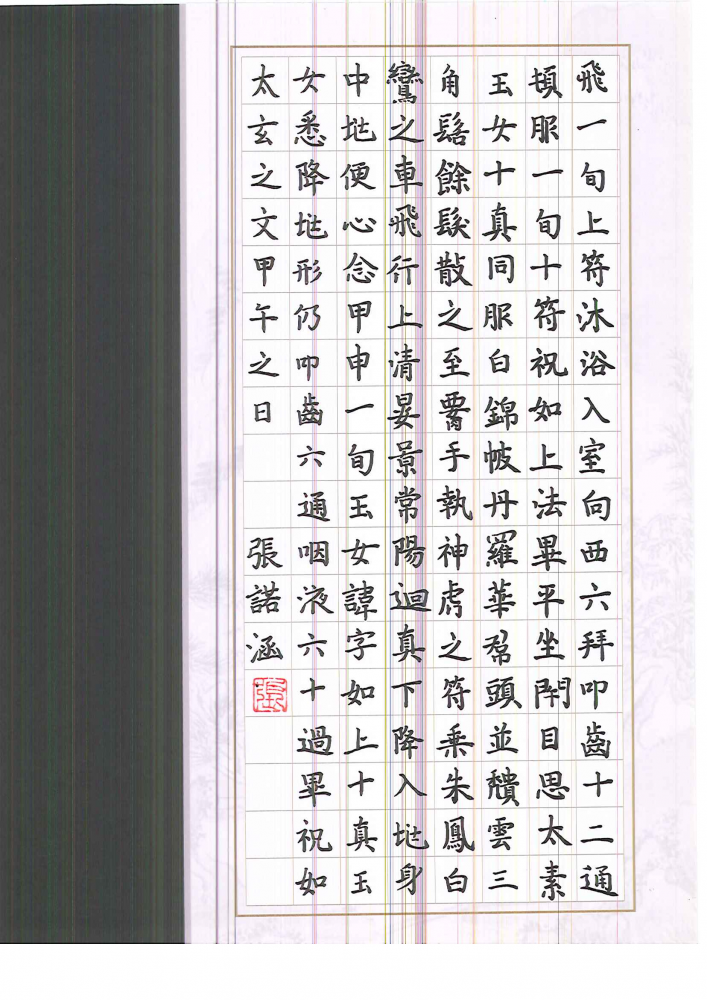 飛一旬上符沐浴入室向西六拜叩齒十二通
頓服一旬十符祝如上法畢平坐閇目思太素
玉女十真同服白錦帔丹羅華帬頭並頹雲三
角髻餘髮散之至腰手執神虎之符乗朱鳳白
鸞之車飛行上清晏景常陽迴真下降入垗身
中垗便心念甲申一旬玉女諱字如上十真玉
女悉降垗形仍叩齒六通咽液六十過畢祝如
太玄之文甲午之日 張諾涵
張